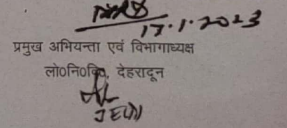 17.1.2023
प्रमुख अभियन्ता एवं विभागाध्यक्ष
लो०नि०वि०, देहरादून